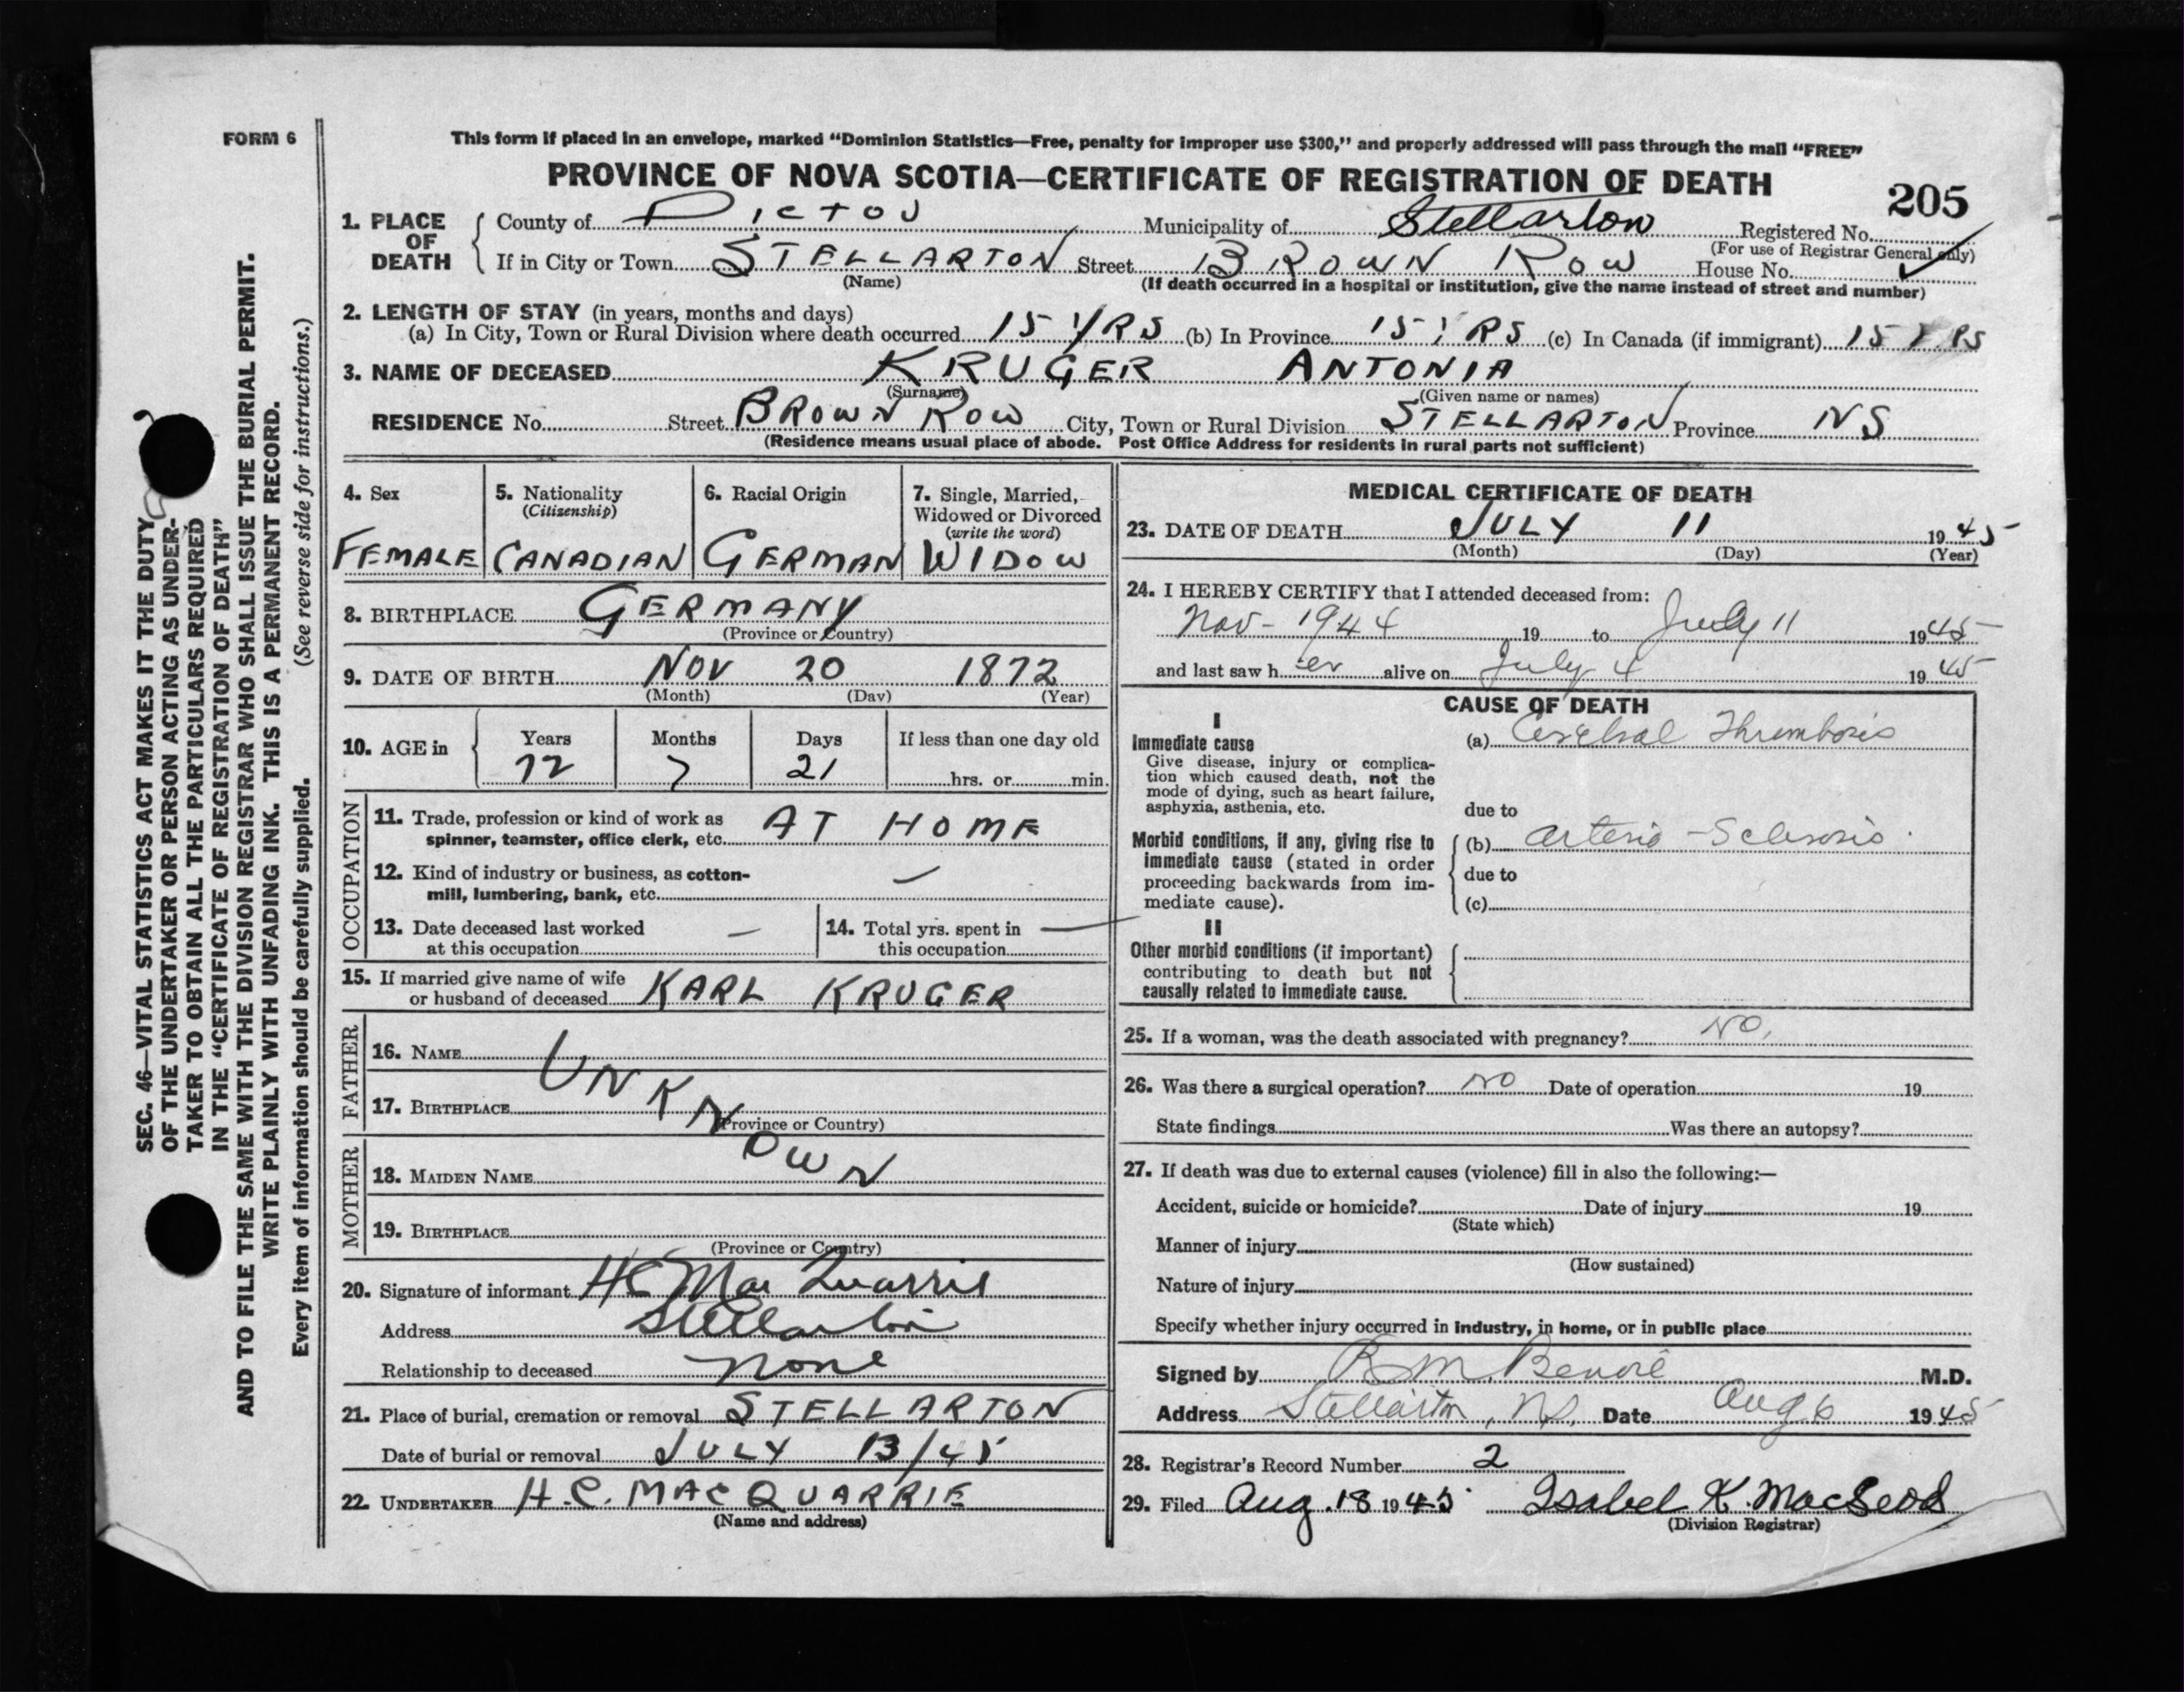 FORM 6
This form if placed in an envelope, marked “Dominion Statistics—Free, penalty for improper use $300,” and properly addressed will pass through the mail “FREE”
PROVINCE OF NOVA SCOTIA—CERTIFICATE OF REGISTRATION OF DEATH
205
1. PLACE OF DEATH County of PICTOU Municipality of Stellarton Registered No.
(For use of Registrar General only)
If in City or Town STELLARTON Street BROWN ROW House No.
(Name) (If death occurred in a hospital or institution, give the name instead of street and number)
2. LENGTH OF STAY (in years, months and days)
(a) In City, Town or Rural Division where death occurred 15 YRS (b) In Province 15 YRS (c) In Canada (if immigrant) 15 YRS
3. NAME OF DECEASED KRUGER ANTONIA
(Surname) (Given name or names)
RESIDENCE No. Street BROWN ROW City, Town or Rural Division STELLARTON Province NS
(Residence means usual place of abode. Post Office Address for residents in rural parts not sufficient)
4. Sex
FEMALE
5. Nationality
(Citizenship)
CANADIAN
6. Racial Origin
GERMAN
7. Single, Married,
Widowed or Divorced
(write the word)
WIDOW
8. BIRTHPLACE GERMANY
(Province or Country)
9. DATE OF BIRTH NOV 20 1872
(Month) (Day) (Year)
10. AGE in Years Months Days If less than one day old
72 7 21 hrs. or min.
OCCUPATION
11. Trade, profession or kind of work as
spinner, teamster, office clerk, etc. AT HOME
12. Kind of industry or business, as cotton-
mill, lumbering, bank, etc. —
13. Date deceased last worked
at this occupation —
14. Total yrs. spent in
this occupation —
15. If married give name of wife
or husband of deceased KARL KRUGER
FATHER
16. NAME
17. BIRTHPLACE
(Province or Country)
UNKNOWN
MOTHER
18. MAIDEN NAME
19. BIRTHPLACE
(Province or Country)
20. Signature of informant HC MacQuarrie
Address Stellarton
Relationship to deceased none
21. Place of burial, cremation or removal STELLARTON
Date of burial or removal JULY 13/45
22. UNDERTAKER H.C. MACQUARRIE
(Name and address)
MEDICAL CERTIFICATE OF DEATH
23. DATE OF DEATH JULY 11 1945
(Month) (Day) (Year)
24. I HEREBY CERTIFY that I attended deceased from:
Nov - 1944 19 to July 11 1945
and last saw her alive on July 4 1945
CAUSE OF DEATH
I
Immediate cause
Give disease, injury or complica-
tion which caused death, not the
mode of dying, such as heart failure,
asphyxia, asthenia, etc.
(a) Cerebral Thrombosis
due to
Morbid conditions, if any, giving rise to
immediate cause (stated in order
proceeding backwards from im-
mediate cause).
(b) arterio-Sclerosis
due to
(c)
II
Other morbid conditions (if important)
contributing to death but not
causally related to immediate cause.
25. If a woman, was the death associated with pregnancy? NO.
26. Was there a surgical operation? NO Date of operation 19
State findings Was there an autopsy?
27. If death was due to external causes (violence) fill in also the following:—
Accident, suicide or homicide? Date of injury 19
(State which)
Manner of injury
(How sustained)
Nature of injury
Specify whether injury occurred in industry, in home, or in public place
Signed by M.D.
Address Stellarton, NS. Date Aug 6 1945
28. Registrar's Record Number 2
29. Filed Aug. 18 1945 Isabel K. MacLeod
(Division Registrar)
SEC. 46—VITAL STATISTICS ACT MAKES IT THE DUTY
OF THE UNDERTAKER OR PERSON ACTING AS UNDER-
TAKER TO OBTAIN ALL THE PARTICULARS REQUIRED
IN THE “CERTIFICATE OF REGISTRATION OF DEATH”
AND TO FILE THE SAME WITH THE DIVISION REGISTRAR WHO SHALL ISSUE THE BURIAL PERMIT.
WRITE PLAINLY WITH UNFADING INK. THIS IS A PERMANENT RECORD.
Every item of information should be carefully supplied. (See reverse side for instructions.)